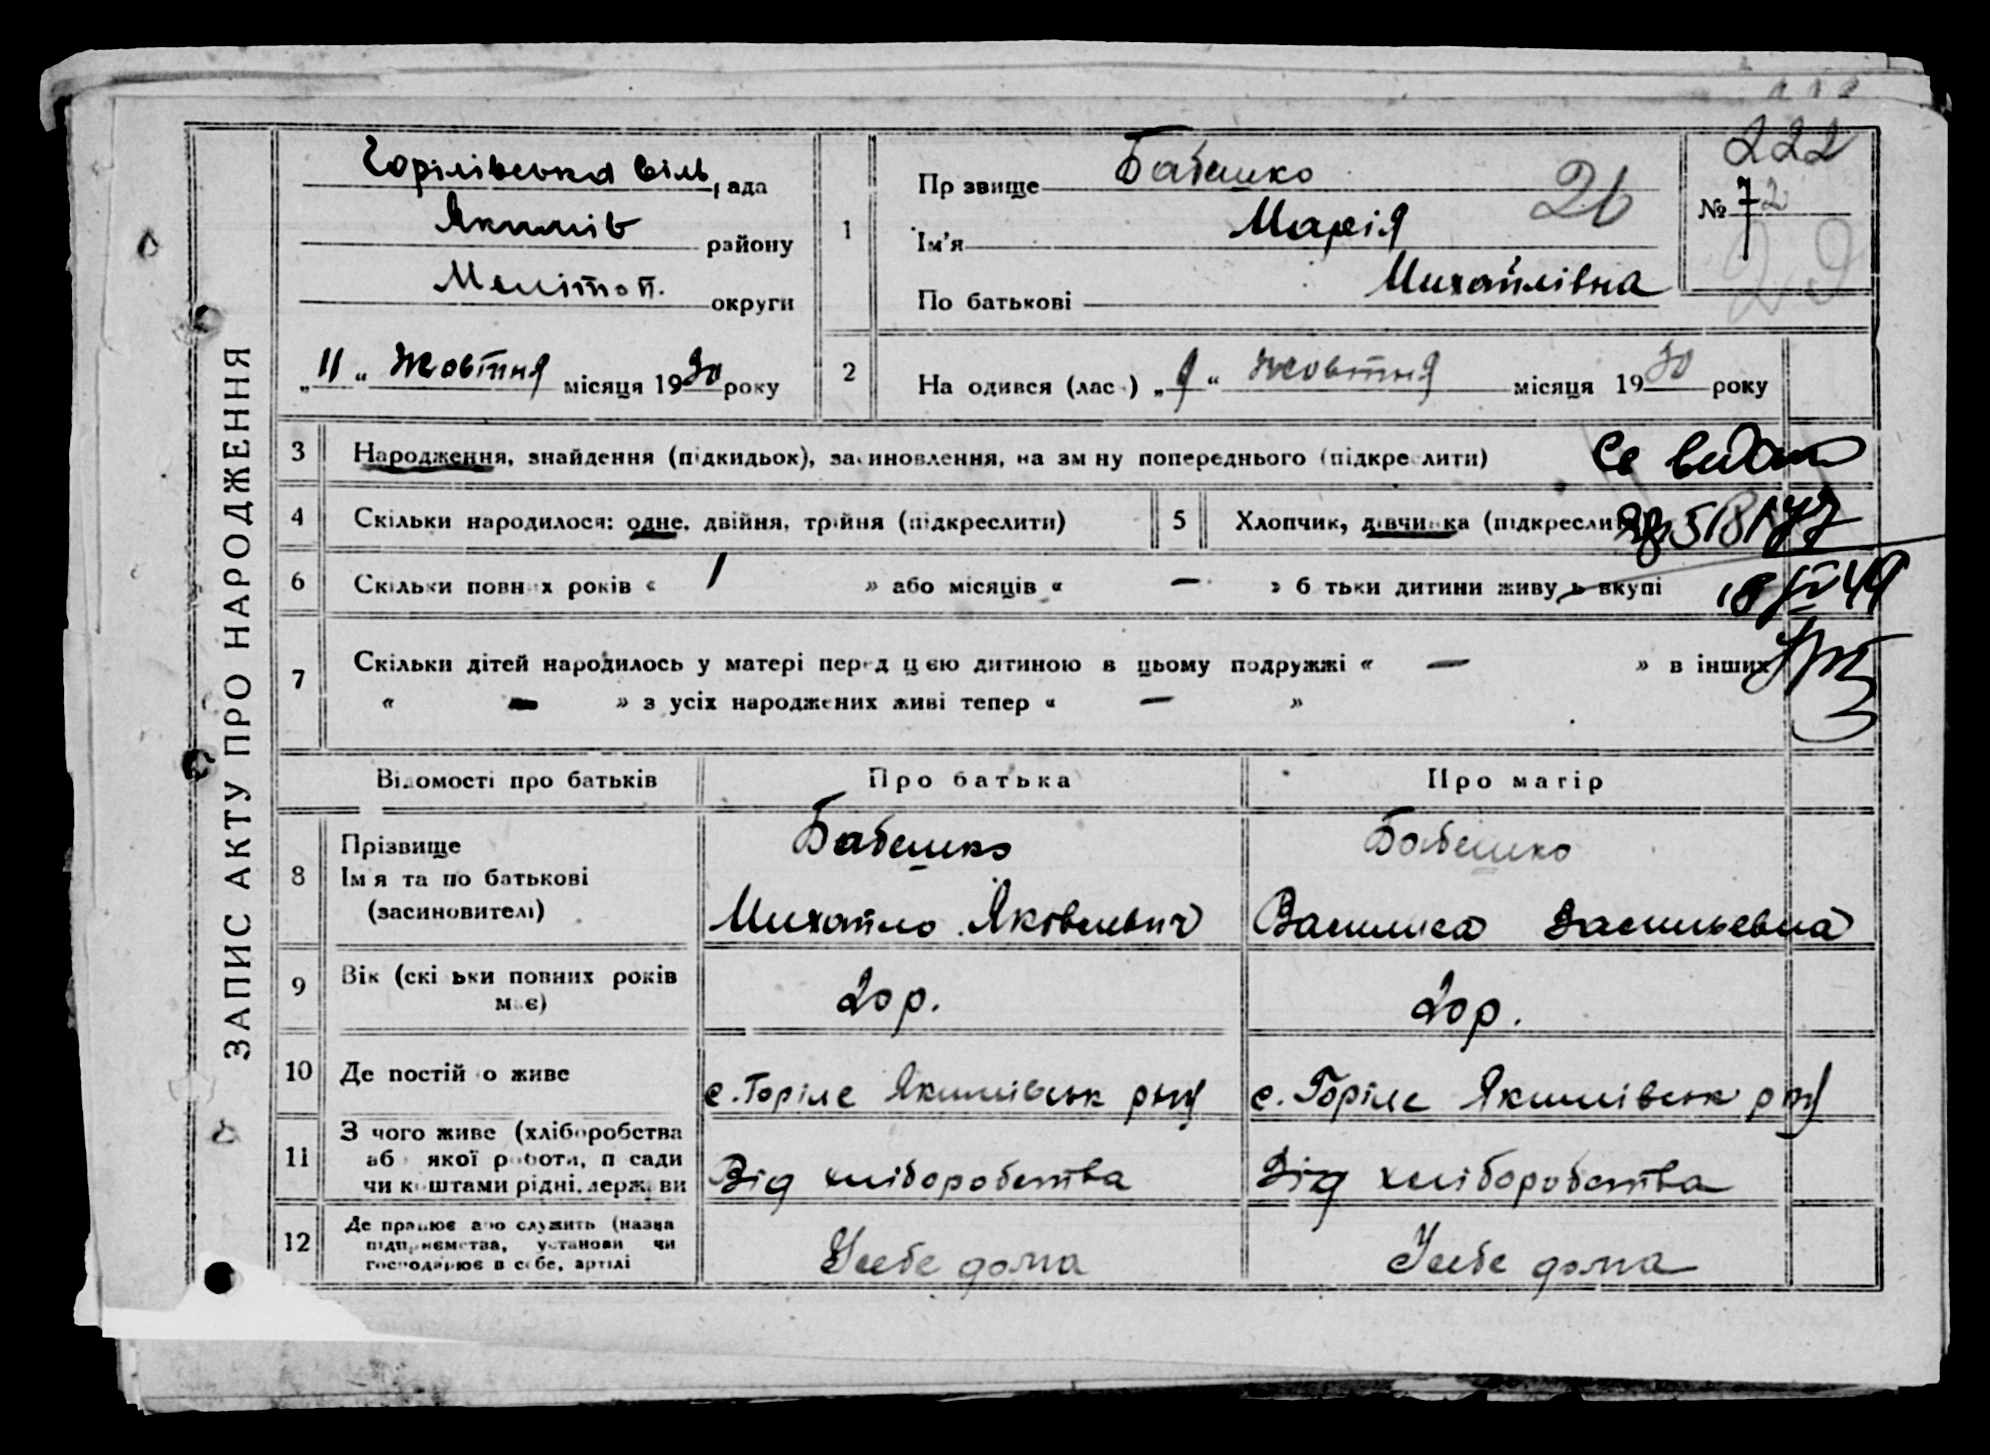 ЗАПИС АКТУ ПРО НАРОДЖЕННЯ
Горілівська сіль рада
Якимів району
Меліtоп. округи
„11“ Жовтня місяця 1930 року
1
Пр звище Бабешко
26
Ім'я Марія
По батькові Михайлівна
222
№ 72
2
На одився (лас ) „9“ Жовтня місяця 1930 року
3 Народження, знайдення (підкидьох), за иновлення, на зм ну попереднього (підкре лити)
4 Скільки народилося: одне, двійня, трійня (підкреслити)
5 Хлопчик, дівчинка (підкресли
6 Скільки повних років « 1 » або місяців « — » б тьки дитини живу ь вкупі
7 Скільки дітей народилось у матері перед цією дитиною в цьому подружжі « — » в інших
« — » з усіх народжених живі тепер « — »
Відомості про батьків Про батька Про матір
8 Прізвище
Ім'я та по батькові
(засиновителі)
Бабешко
Михайло Яковлевич
Бабешко
Василиса Васильевна
9 Вік (скі ьки повних років
має)
20 р.
20 р.
10 Де постій о живе
с. Горіле Якимівськ р-ну
с. Горіле Якимівськ р-ну
11 З чого живе (хліборобства
або якої роботи, п сади
чи коштами рідні, держави
Від хліборобства
Від хліборобства
12 Де працює або служить (назва
підприємства, установи чи
господарює в себе, артілі
У себе дома
У себе дома